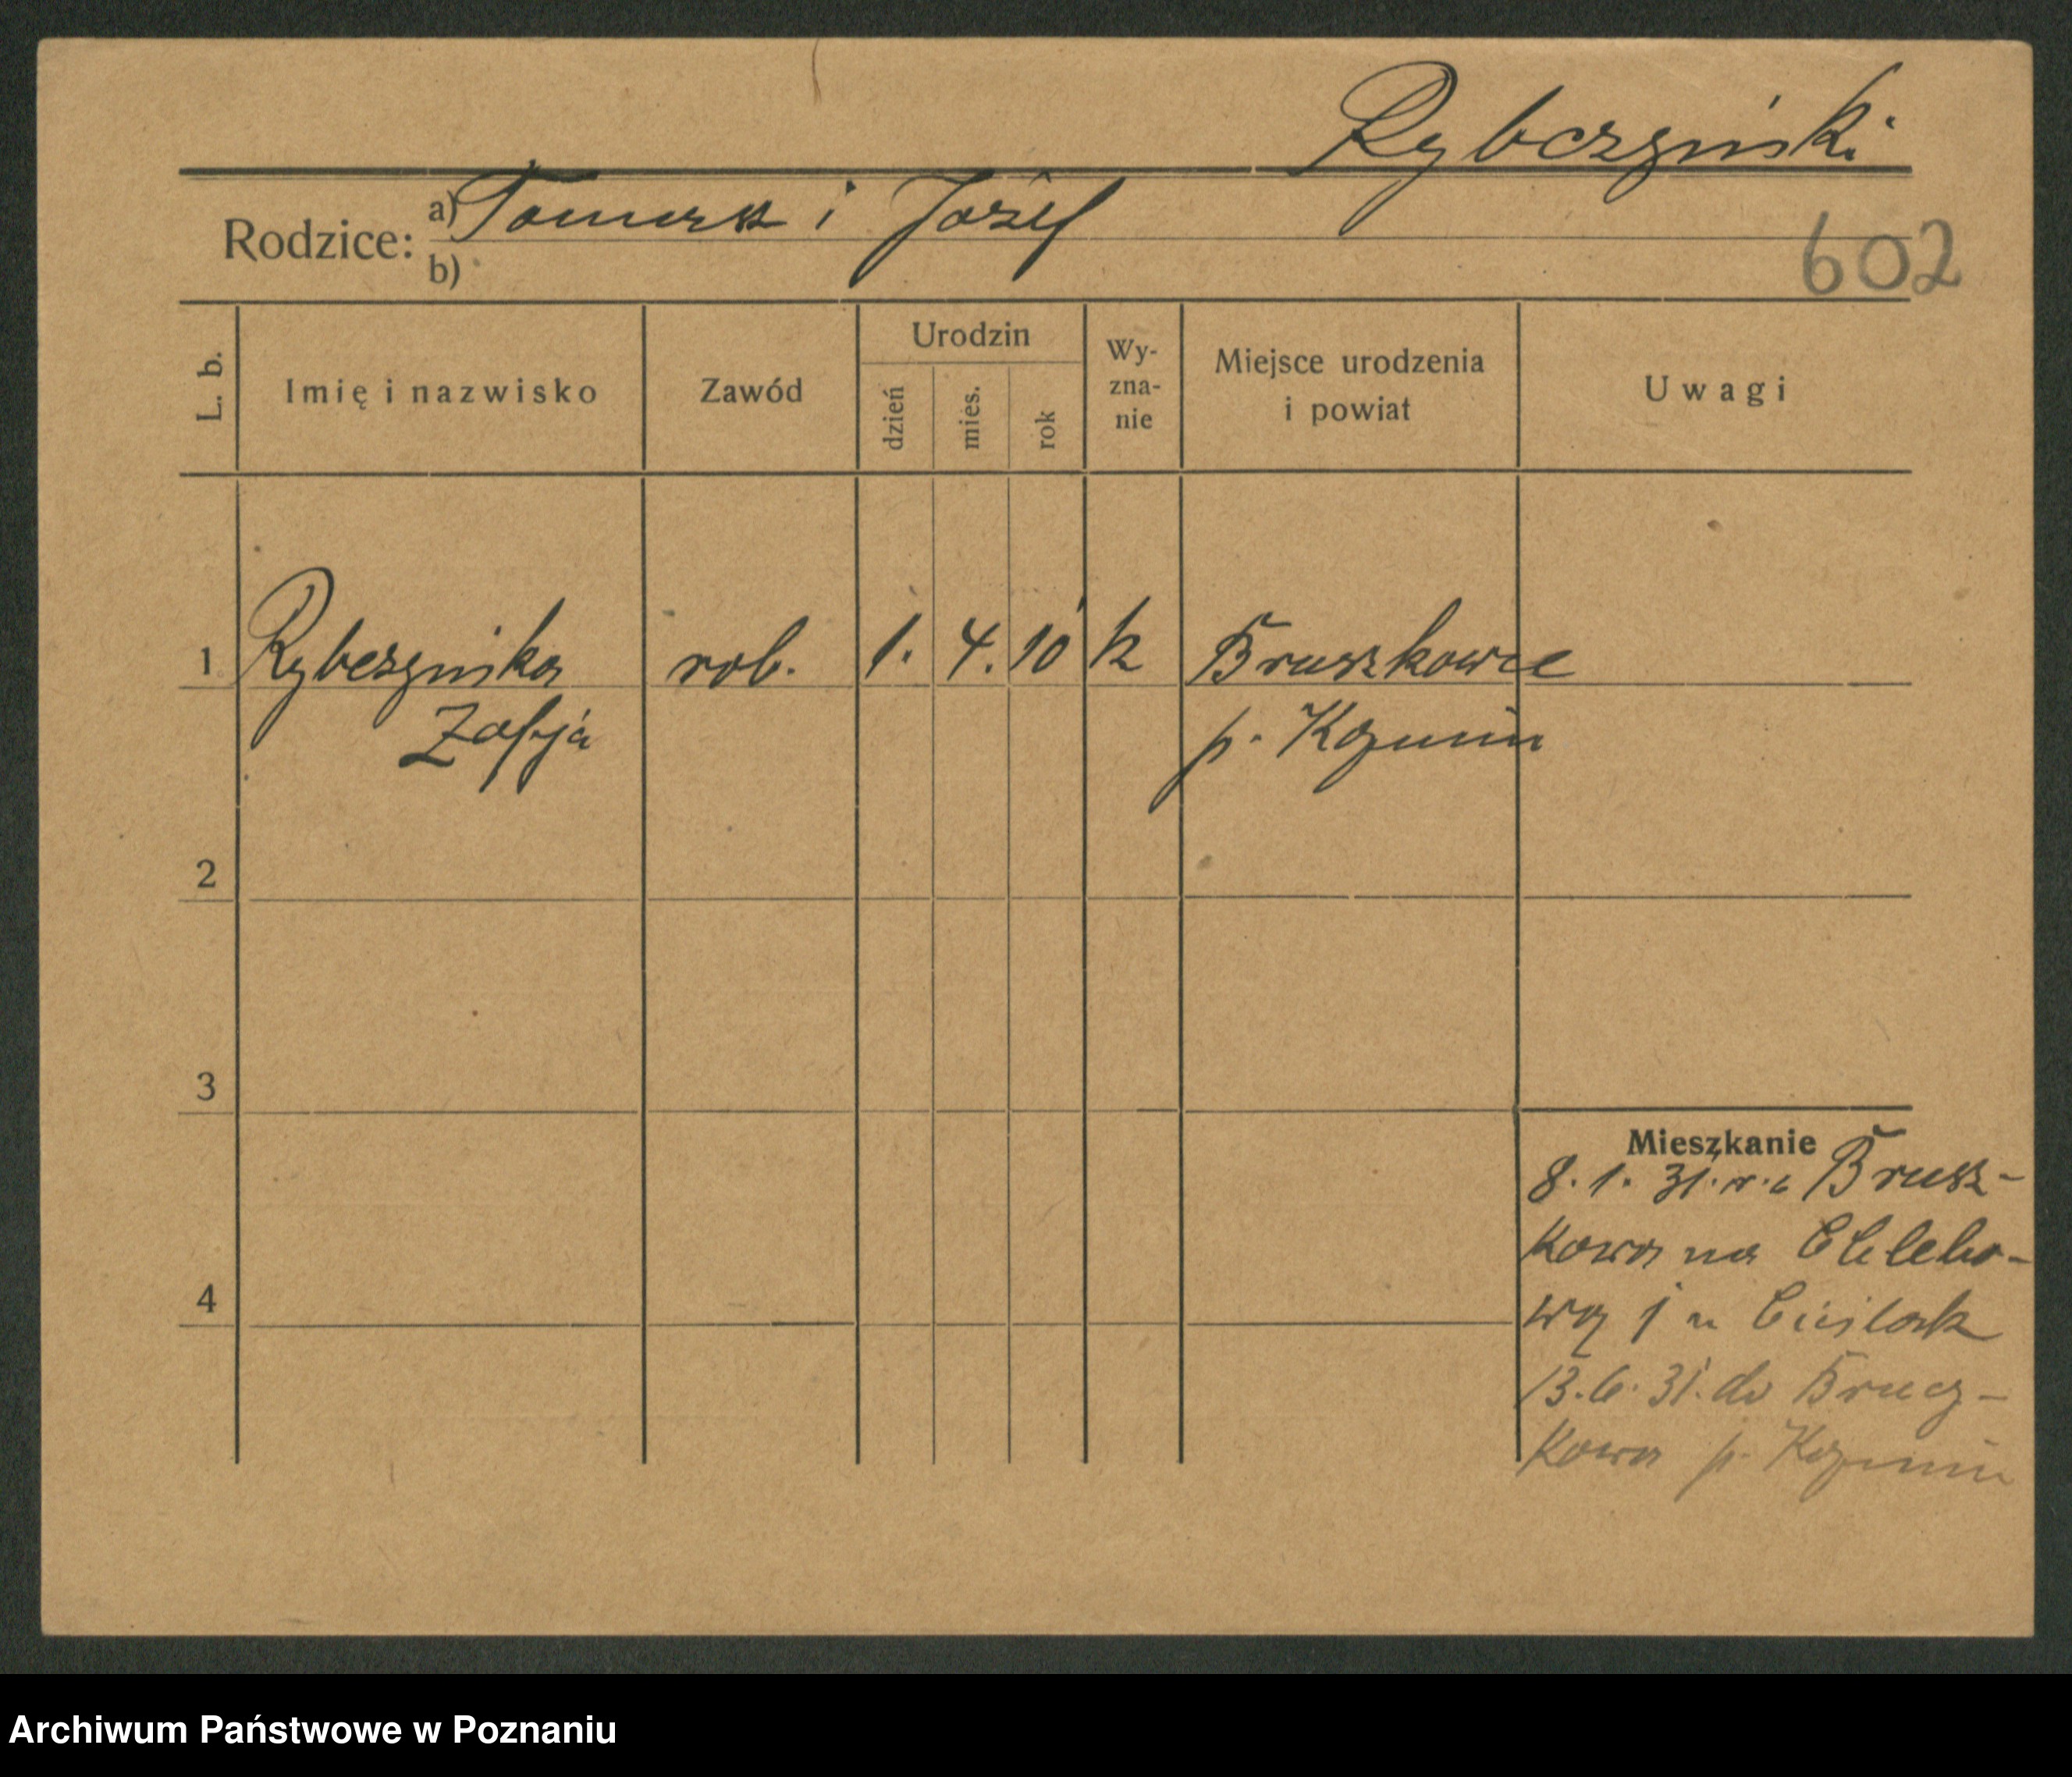 Rybczyński
Rodzice: a) Tomasz i Józef
b)
602
L. b.
Imię i nazwisko
Zawód
Urodzin
dzień
mies.
rok
Wy-
zna-
nie
Miejsce urodzenia
i powiat
Uwagi
1 Rybczyńska rob. 1. 4. 10 k Bruszkowie
Zofja p. Koźmin
2
3
4
Mieszkanie
8. 1. 31. Brusz-
kowa na Chlebo-
wą 1 u Cieślak
13. 6. 31. do Brucz-
kowa p. Koźmin
Archiwum Państwowe w Poznaniu